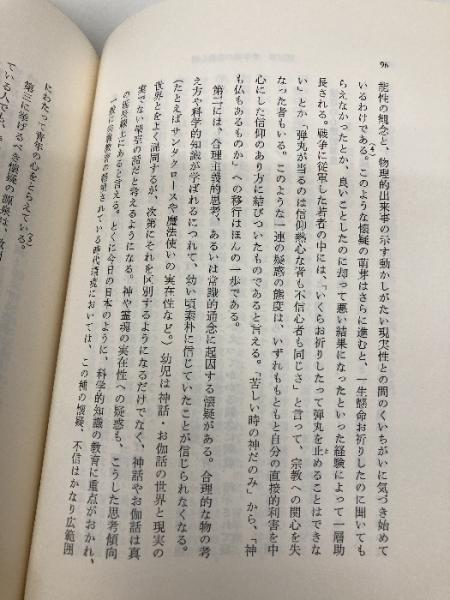 96
能性の観念と、物理的出来事の示す動かしがたい現実性との間のくいちがいに気づき始めて
いるわけである。このような懐疑の萌芽はさらに進むと、一生懸命お祈りしたのに聞いても
らえなかったとか、良いことしたのに却って悪い結果になったといった経験によって一層助
長される。戦争に従軍した若者の中には、「いくらお祈りしたって弾丸を止めることはできな
い」とか「弾丸が当るのは信仰熱心な者も不信心者も同じさ」と言って、宗教への関心を失
なった者もいる。このような一連の疑惑の態度は、いずれももともと自分の直接的利害を中
心にした信仰のあり方に結びついたものであると言える。「苦しい時の神だのみ」から、「神
も仏もあるものか」への移行はほんの一歩である。
第二には、合理主義的思考、あるいは常識的通念に起因する懐疑がある。合理的な物の考
え方や科学的知識が学ばれるにつれて、幼い頃素朴に信じていたことが信じられなくなる。
(たとえばサンタクロースや魔法使いの実在性など。)幼児は神話・お伽話の世界と現実の
世界とをよく混同するが、次第にそれを区別するようになるだけでなく、神話やお伽話は真
実でない架空の話だと考えるようになる。神や霊魂の実在性への疑惑も、こうした思考傾向
の延長線上にあると言える。とくに今日の日本のように、科学的知識の教育に重点がおかれ、
一般に宗教教育の軽視されている時代環境においては、この種の懐疑、不信はかなり広範囲
にわたって青年の心をとらえている。
第三に挙げるべき懐疑の源泉は、教
ている人でも、